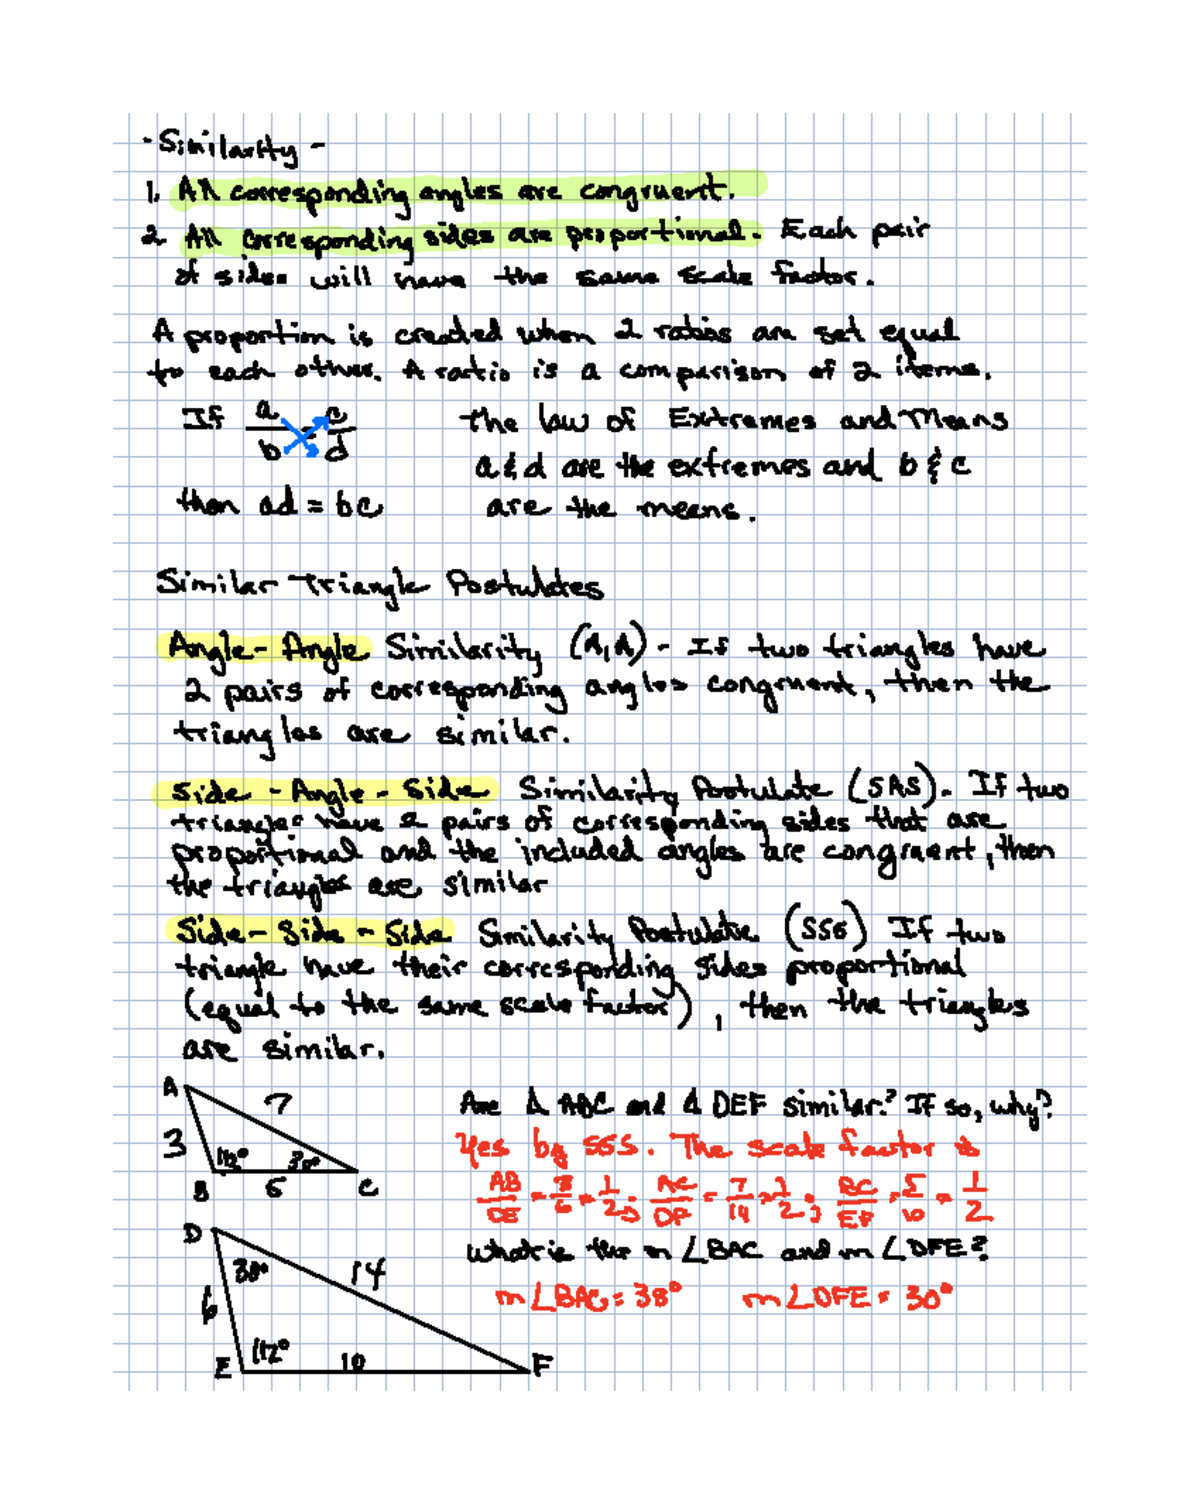 - Similarity -
1. All corresponding angles are congruent.
2. All corresponding sides are proportional. Each pair
of sides will have the same scale factor.
A proportion is created when 2 ratios are set equal
to each other. A ratio is a comparison of 2 items.
If a/b = c/d the law of Extremes and Means
a & d are the extremes and b & c
then ad = bc are the means.
Similar Triangle Postulates
Angle - Angle Similarity (A,A) - If two triangles have
2 pairs of corresponding angles congruent, then the
triangles are similar.
Side - Angle - Side Similarity Postulate (SAS). If two
triangles have 2 pairs of corresponding sides that are
proportional and the included angles are congruent, then
the triangles are similar
Side - Side - Side Similarity Postulate (SSS) If two
triangle have their corresponding sides proportional
(equal to the same scale factor), then the triangles
are similar.
A 7 3 112° 30° B 5 C
Are Δ ABC and Δ DEF similar? If so, why?
Yes by SSS. The scale factor is
AB/DE = 3/6 = 1/2; AC/DF = 7/14 = 1/2; BC/EF = 5/10 = 1/2
What is the m ∠BAC and m ∠DFE?
m∠BAC = 38° m∠DFE = 30°
D 38° 14 6 112° E 10 F